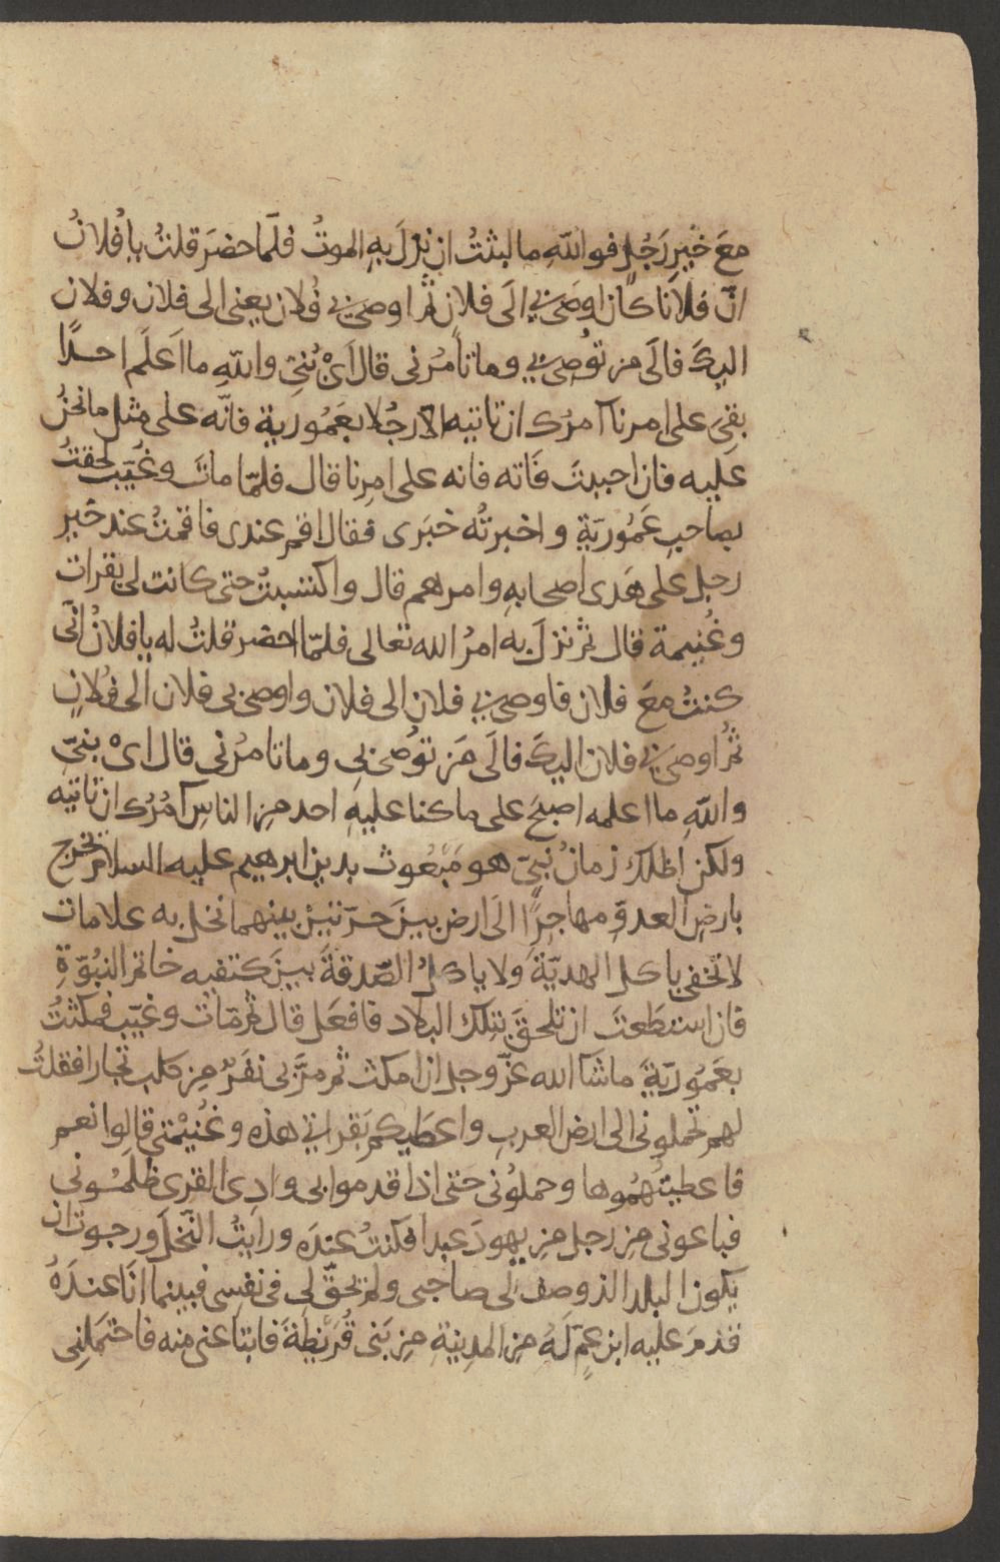 معَ خَيرِ رَجُلٍ فوالله ما لبثتُ ان نزلَ بهِ الموتُ فلمّا حضرَ قلتُ يا فُلانُ
انّ فلانًا كان اوصَى بي الَى فلان ثم اوصى بي فُلان يعنى الى فلان وفلان
اليكَ فالَى من تُوصِى بي وما تأمُرنى قال اَىْ بُنىّ واللهِ ما اَعلَم احدًا
بقِىَ على امرنا آمرُك ان تاتيه الا رجُلا بعَمُورية فانّه على مثل ما نحنُ
عليه فان احببتَ فَاته فانه على امرِنا قال فلمّا ماتَ وغُيّب لحقتُ
بصاحبِ عَمُوريَةِ واخبرتُه خبَرى فقال اقم عندى فاقمتُ عند خَير
رجل على هَدى اصحابهِ وامرهم قال واكتسبتُ حتى كانت لى بقرات
وغُنيمة قال ثم نزلَ به امرُ الله تعالى فلمّا احضر قلتُ له يا فلانُ انّى
كنتُ معَ فلان فاوصى بي فلان الى فلان واوصى بى فلان الى فُلانٍ
ثمُ اوصَى بي فلان اليكَ فالَى مَن تُوصى بى وما تامرُنى قال اىْ بنىّ
واللهِ ما اعلمه اصبَحَ على ما كنا عليهِ احد من الناسِ آمُرُك ان تاتيه
ولكن اظلك زمانُ نبىّ هو مَبعُوث بدين ابرهيم عليه السلام يخرج
بارضِ العدوِّ مهاجِرًا الَى ارض بينَ حرّتينْ بينهما نخل به علامات
لا تَخفى ياكل الهديّة ولا ياكلُ الصّدقةَ بينَ كتفيه خاتم النبُوّةِ
فان استطَعتَ ان تلحقَ بتلك البلاد فافعَل قال ثم مات وغيّب فمكثتُ
بعَمُوريّةَ ما شا الله عزّ وجل ان امكث ثم مرّ بى نفَرٌ من كلب تجارا فقلتُ
لهم تحملونى الى ارض العرب واعطيكم بَقراتي هذه وغُنيْمتى قالوا نعم
فاعطيتُهُمُوها وحملوُنى حَتى اذا قدموا بى وادِى القرى ظلمُونى
فباعونى من رجل من يهودَ عبدا فكنتُ عندَه ورايتُ النّخلَ ورجوت ان
يكون البلد الذ وصف لى صاحبى ولم يحقّ لى فى نفسِى فبينما انَا عندَهُ
قدمَ عليه ابن عمٍّ لَهُ من المدينةِ من بَنى قُريَظةَ فابتاعنى منه فاحتمَلنِى